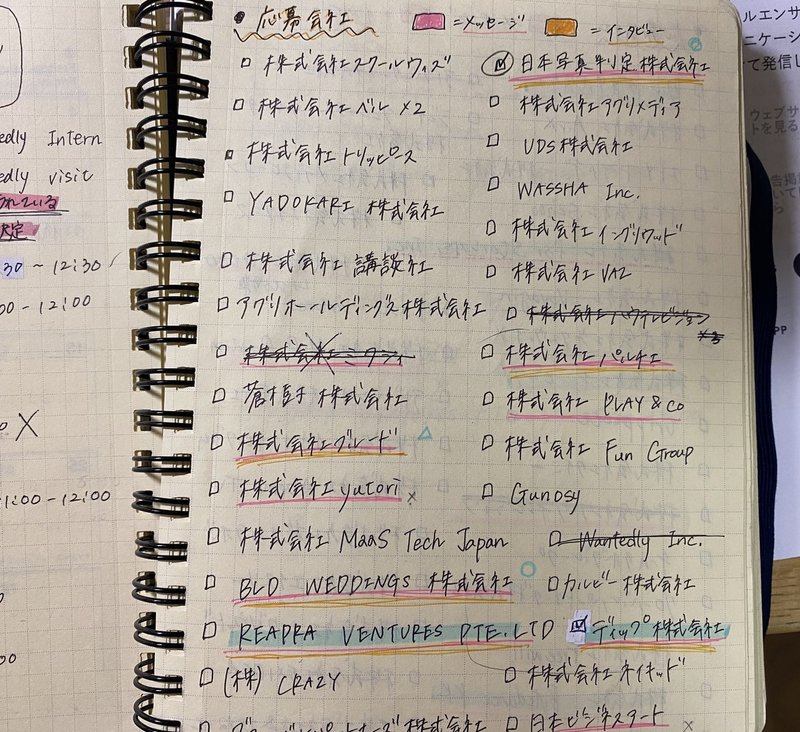 edly Intern
edly visit
られている
決定
30 ~ 12:30
00 - 12:00
X
11:00 - 12:00
00
応募会社
=メッセージ
=インタビュー
株式会社スクールウィズ
株式会社ベル ×2
株式会社トリッピース
YADOKARI 株式会社
株式会社 講談社
アグリホールディングス株式会社
蒼樟亭 株式会社
株式会社グレード
株式会社yutori ×
株式会社 MaaS Tech Japan
BLD WEDDINGS 株式会社
REAPRA VENTURES PTE.LTD
(株) CRAZY
株式会社
日本写真判定株式会社
株式会社アプリメディア
UDS株式会社
WASSHA Inc.
株式会社イングリウッド
株式会社 VAZ
株式会社ハウテレビジョン
×3
株式会社 パルチェ
株式会社 PLAY & co
株式会社 Fun Group
Gunosy
Wantedly Inc.
カルビー株式会社
ディップ株式会社
株式会社ネイキッド
日本ビジネスタート ×
ルエンサ
ニケーシ
て発信し
ウェブサ
トを見る
告掲
PP